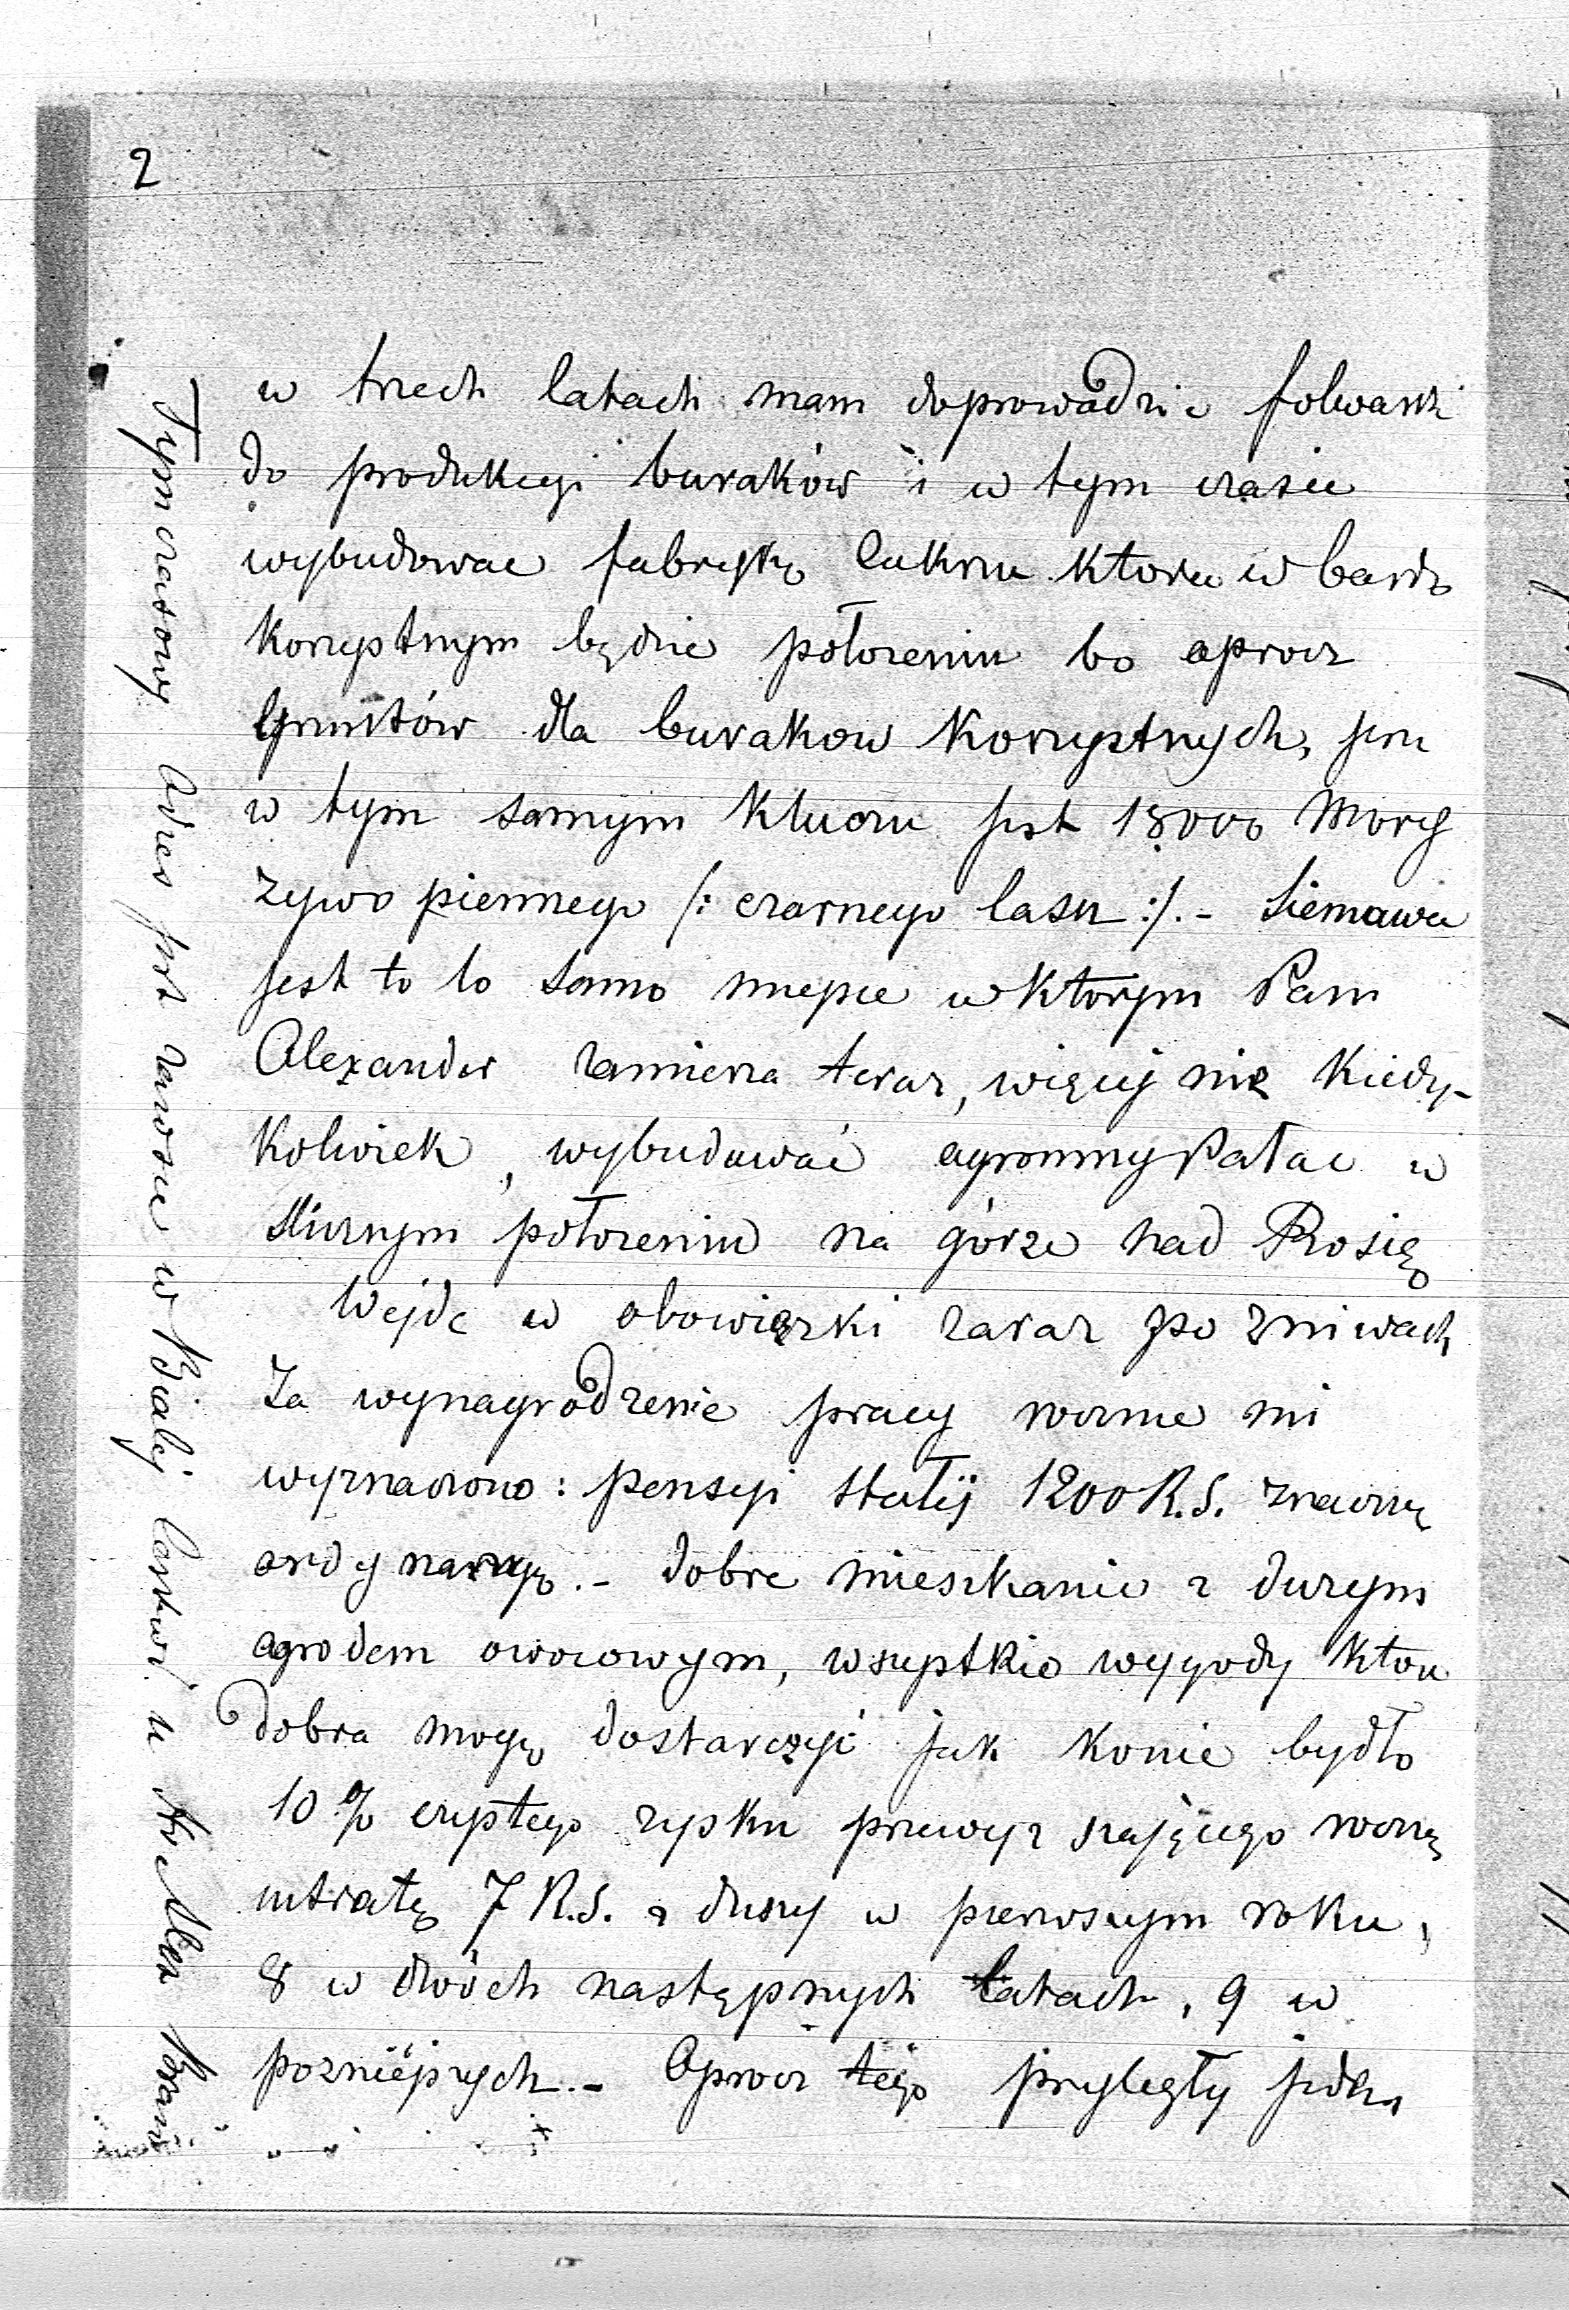 2
w trzech latach mam doprowadzić folwarki
do produkcyi buraków i w tym czasie
wybudować fabrykę cukru która w bardzo
korzystnym będzie położeniu bo oprócz
gruntów dla burakow korzystnych, jeszcze
w tym samym kluczu jest 18000 morg
żywo piennego /: czarnego lasu :/. - Siemawa
jest to to samo miejsce w którym Pan
Alexander zamierza teraz, więcej niż kiedy-
kolwiek, wybudować ogromny Pałac w
ślicznym położeniu na górze nad Rosią
Wejdę w obowiązki zaraz po żniwach
Za wynagrodzenie pracy rocznie mi
wyznaczono: pensyi stałéj 1200 R.S. znaczną
ordynaryę. - dobre mieszkanie z dużym
ogrodem owocowym, wszystkie wygody które
dobra mogą dostarczyć jak konie bydło
10 % czystego zysku przewyższającego roczną
intratę 7 R.S. z duszy w pierwszym roku,
8 w dwóch następnych latach, 9 w
poznièjszych. - Oprócz tego przyległy jeden
Tymczasowy adres jest zawsze w Białej Cerkwi u